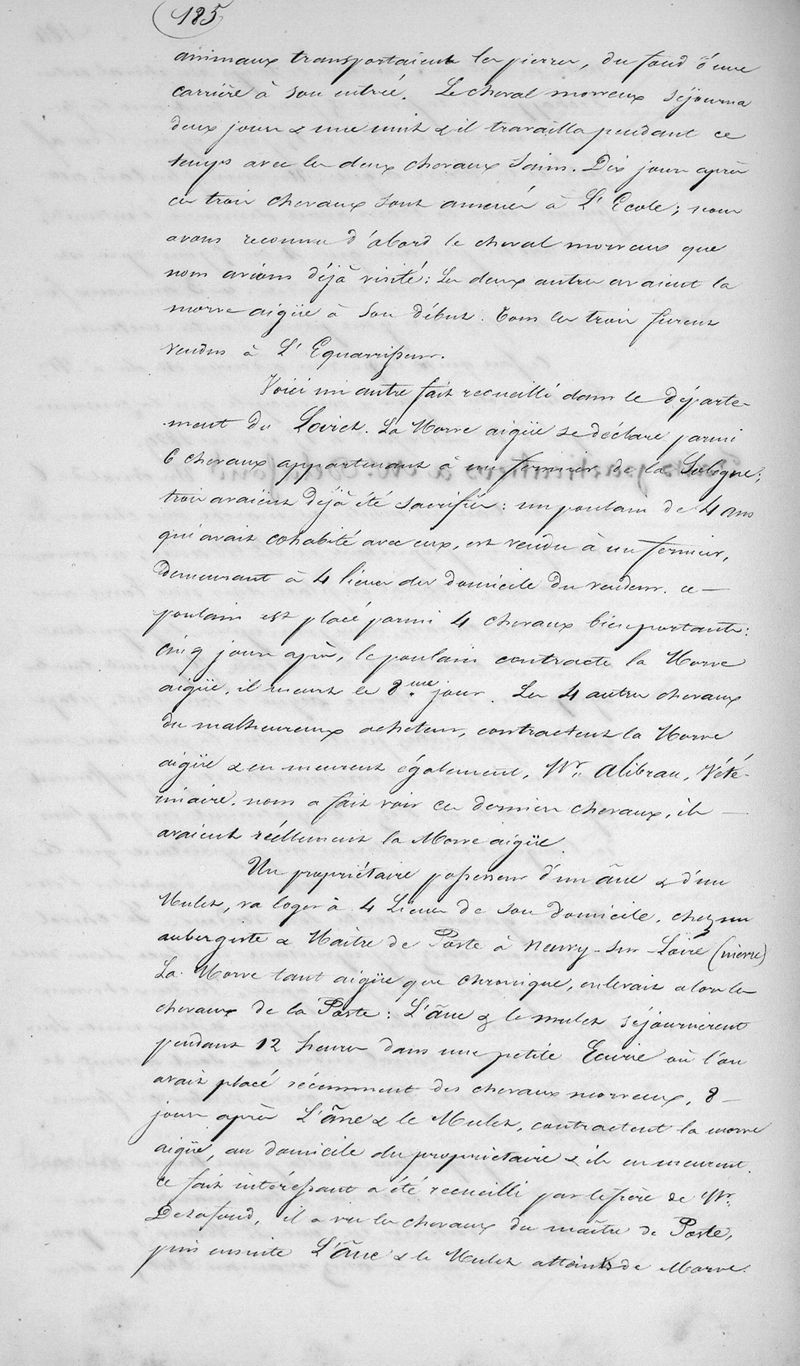 185
animaux transportaient les pierres, du fond d'une
carrière à son entrée. Le cheval morveux séjourna
deux jours & une nuit & il travailla pendant ce
temps avec les deux chevaux sains. Dix jours après
ces trois chevaux sont amenés à L'Ecole; nous
avons reconnu d'abord le cheval morveux que
nous avions déjà visité: Les deux autres avaient la
morve aigüe à son début. Tous les trois furent
vendus à L'Equarrisseur.
Voici un autre fait recueilli dans le départe-
ment du Loiret. La Morve aigüe se déclare parmi
6 chevaux appartenant à un fermier de la Sologne;
trois avaient déjà été sacrifiés: un poulain de 4 ans
qui avait cohabité avec eux, est vendu à un fermier,
demeurant à 4 lieues du domicile du vendeur. ce —
poulain est placé parmi 4 chevaux bien portants:
cinq jours après, le poulain contracte la Morve
aigüe, il meurt le 8.me jour. Les 4 autres chevaux
du malheureux acheteur, contractent la Morve
aigüe & en meurent également, Mr. Alibran, Vété-
rinaire. nous a fait voir ces derniers chevaux, ils —
avaient réellement la Morve aigüe.
Un propriétaire possesseur d'un âne & d'un
Mulet, va loger à 4 Lieues de son domicile, chez un
aubergiste & Maître de Poste à neuvy-sur-Loire (nièvre)
La Morve tant aigüe que chronique, enlevait alors les
chevaux de la Poste: L'âne & le mulet séjournèrent
pendant 12 heures dans une petite Ecurie où l'on
avait placé récemment des chevaux morveux, 8 —
jours après L'âne & le Mulet, contractent la morve
aigüe, au domicile du propriétaire & ils en meurent.
ce fait intéressant a été recueilli par le frère de Mr.
Delafond, il a vu les chevaux du maître de Poste,
puis ensuite L'âne & le Mulet atteints de Morve.